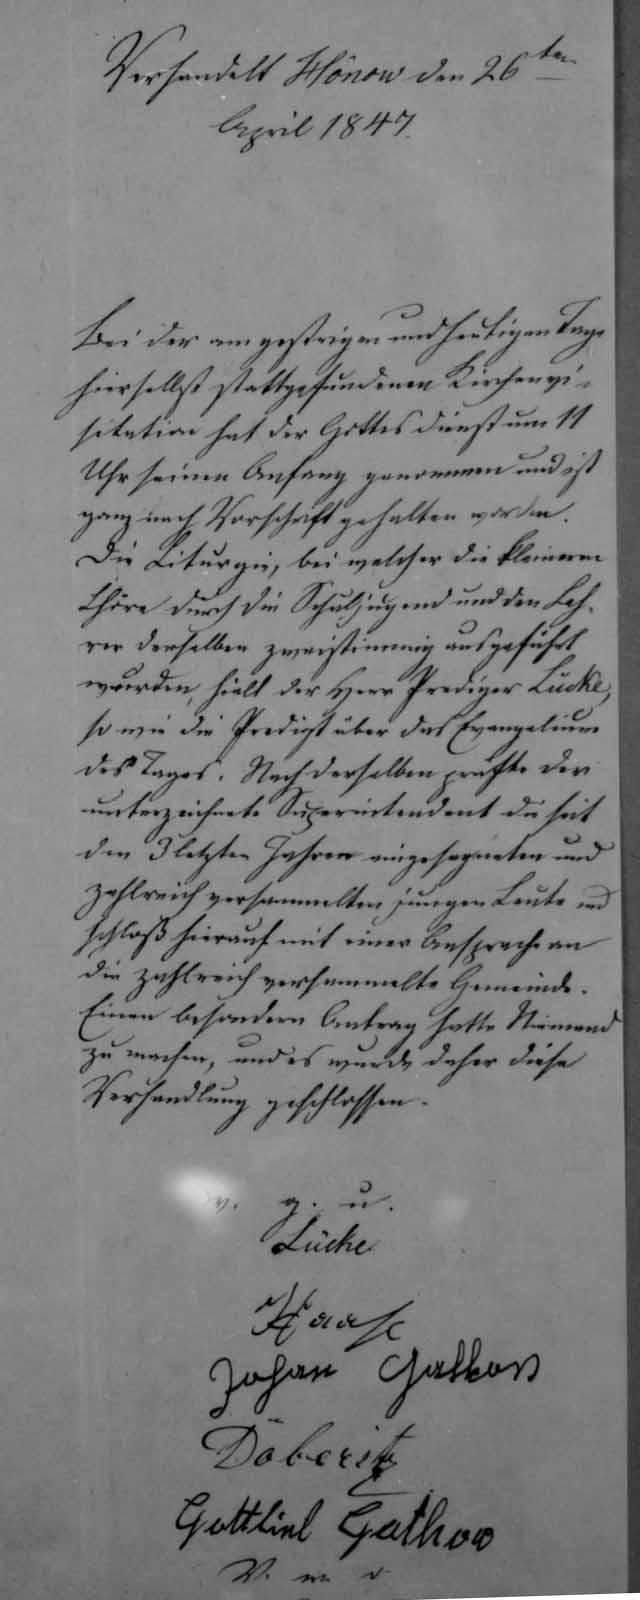 Verhandelt Hönow den 26ten
April 1847.
Bei der am gestrigen und heutigen Tage
hierselbst stattgefundenen Kirchenvi-
sitation hat der Gottesdienst um 11
Uhr seinen Anfang genommen und ist
ganz nach Vorschrift gehalten worden.
Die Liturgie, bei welcher die kleineren
Chöre durch die Schuljugend und den Leh-
rer derselben zweistimmig ausgeführt
wurden, hielt der Herr Prediger Lücke,
so wie die Predigt über das Evangelium
des Tages. Nach derselben prüfte der
unterzeichnete Superintendent die seit
den 3 letzten Jahren eingesegneten und
zahlreich versammelten jungen Leute und
schloß hierauf mit einer Ansprache an
die zahlreich versammelte Gemeinde.
Einen besondern Antrag hatte Niemand
zu machen, und es wurde daher diese
Verhandlung geschlossen.
v. g. u.
Lücke
Haase
Johan Gathow
Döberitz
Gottlieb Gathow